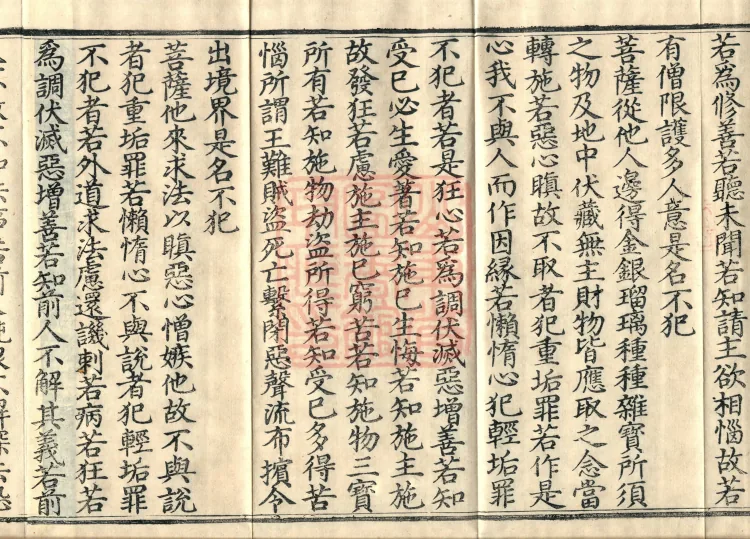 若為修善若聽未聞若知請主欲相惱故若
有僧限護多人意是名不犯
菩薩從他人邊得金銀瑠璃種種雜寶所須
之物及地中伏藏無主財物皆應取之念當
轉施若惡心瞋故不取者犯重垢罪若作是
心我不與人而作因緣若懶惰心犯輕垢罪
不犯者若是狂心若為調伏滅惡增善若知
受已必生愛著若知施已生悔若知施主施
故發狂若慮施主施已窮苦若知施物三寶
所有若知施物劫盜所得若知受已多得苦
惱所謂王難賊盜死亡繫閉惡聲流布擯令
出境界是名不犯
菩薩他來求法以瞋惡心憎嫉他故不與說
者犯重垢罪若懶惰心不與說者犯輕垢罪
不犯者若外道求法慮還譏刺若病若狂若
為調伏滅惡增善若知前人不解其義若前